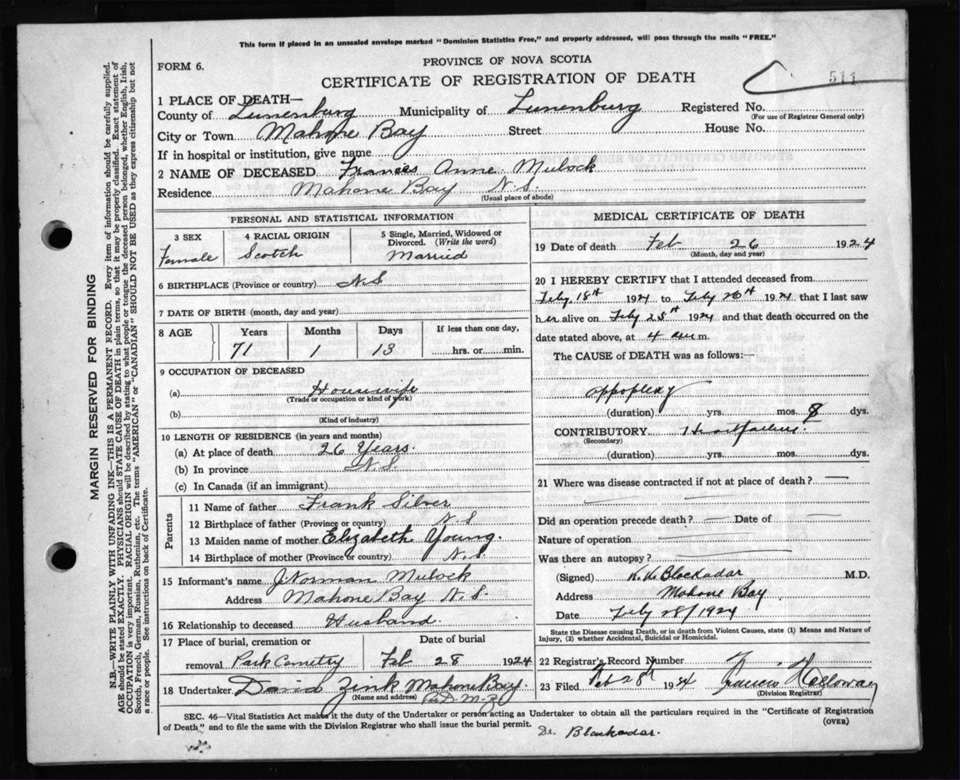 This form if placed in an unsealed envelope marked "Dominion Statistics Free," and properly addressed, will pass through the mails "FREE."
FORM 6.
PROVINCE OF NOVA SCOTIA
CERTIFICATE OF REGISTRATION OF DEATH
511
1 PLACE OF DEATH—
County of Lunenburg Municipality of Lunenburg Registered No.
(For use of Registrar General only)
City or Town Mahone Bay Street House No.
If in hospital or institution, give name
2 NAME OF DECEASED Frances Anne Mulock
Residence Mahone Bay N.S.
(Usual place of abode)
PERSONAL AND STATISTICAL INFORMATION
3 SEX 4 RACIAL ORIGIN 5 Single, Married, Widowed or Divorced. (Write the word)
Female Scotch Married
6 BIRTHPLACE (Province or country) N S
7 DATE OF BIRTH (month, day and year)
8 AGE Years Months Days If less than one day,
71 1 13 hrs. or min.
9 OCCUPATION OF DECEASED
(a) Housewife
(Trade or occupation or kind of work)
(b)
(Kind of industry)
10 LENGTH OF RESIDENCE (in years and months)
(a) At place of death 26 Years.
(b) In province N.S
(c) In Canada (if an immigrant)
Parents
11 Name of father Frank Silver
12 Birthplace of father (Province or country) N.S
13 Maiden name of mother Elizabeth Young.
14 Birthplace of mother (Province or country) N.S
15 Informant's name J Norman Mulock
Address Mahone Bay N.S.
16 Relationship to deceased Husband
17 Place of burial, cremation or Date of burial
removal Park Cemetry Feb 28 1924
18 Undertaker David Zink Mahone Bay
(Name and address) Per D. M. Z
MEDICAL CERTIFICATE OF DEATH
19 Date of death Feb 26 1924
(Month, day and year)
20 I HEREBY CERTIFY that I attended deceased from
Feby 18th 1924 to Feby 26th 1924 that I last saw
her alive on Feby 25th 1924 and that death occurred on the
date stated above, at 4 am m.
The CAUSE of DEATH was as follows:—
appoplexy
(duration) yrs. mos. 8 dys.
CONTRIBUTORY Heart failure.
(Secondary)
(duration) yrs. mos. dys.
21 Where was disease contracted if not at place of death?
Did an operation precede death? Date of
Nature of operation
Was there an autopsy?
(Signed) Blackadar M.D.
Address Mahone Bay
Date Feby 28/1924
State the Disease causing Death, or in death from Violent Causes, state (1) Means and Nature of
Injury, (2) whether Accidental, Suicidal or Homicidal.
22 Registrar's Record Number
23 Filed Feb 28th 1924 Francis Holloway
(Division Registrar)
SEC. 46—Vital Statistics Act makes it the duty of the Undertaker or person acting as Undertaker to obtain all the particulars required in the "Certificate of Registration
of Death" and to file the same with the Division Registrar who shall issue the burial permit.
(OVER)
Dr Blackadar.
MARGIN RESERVED FOR BINDING
N.B.—WRITE PLAINLY WITH UNFADING INK—THIS IS A PERMANENT RECORD. Every item of information should be carefully supplied.
AGE should be stated EXACTLY. PHYSICIANS should STATE CAUSE OF DEATH in plain terms, so that it may be properly classified. Exact statement of
OCCUPATION is very important. RACIAL ORIGIN will be described by stating to what people or tongue the deceased person belonged, whether English, Irish,
Scotch, French, German, Russian, Ruthenian, etc. The terms "AMERICAN" or "CANADIAN" SHOULD NOT BE USED as they express citizenship but not
a race or people. See instructions on back of Certificate.